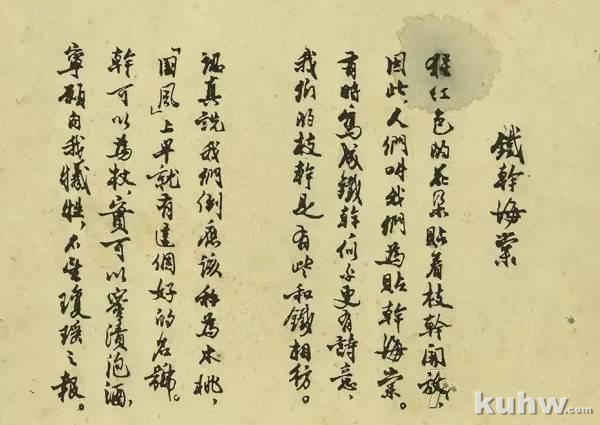 鐵幹海棠
猩紅色的花朵貼着枝幹開放，
因此，人們叫我們為貼幹海棠。
有時寫成鐵幹何尝更有詩意，
我们的枝幹是有些和鐵相彷。
認真說我們倒應該称為木桃，
「国風」上早就有這個好的名號。
幹可以為杖，實可以蜜漬泡酒，
寧願自我犧牲，不望瓊瑤之報。
kuhw.com